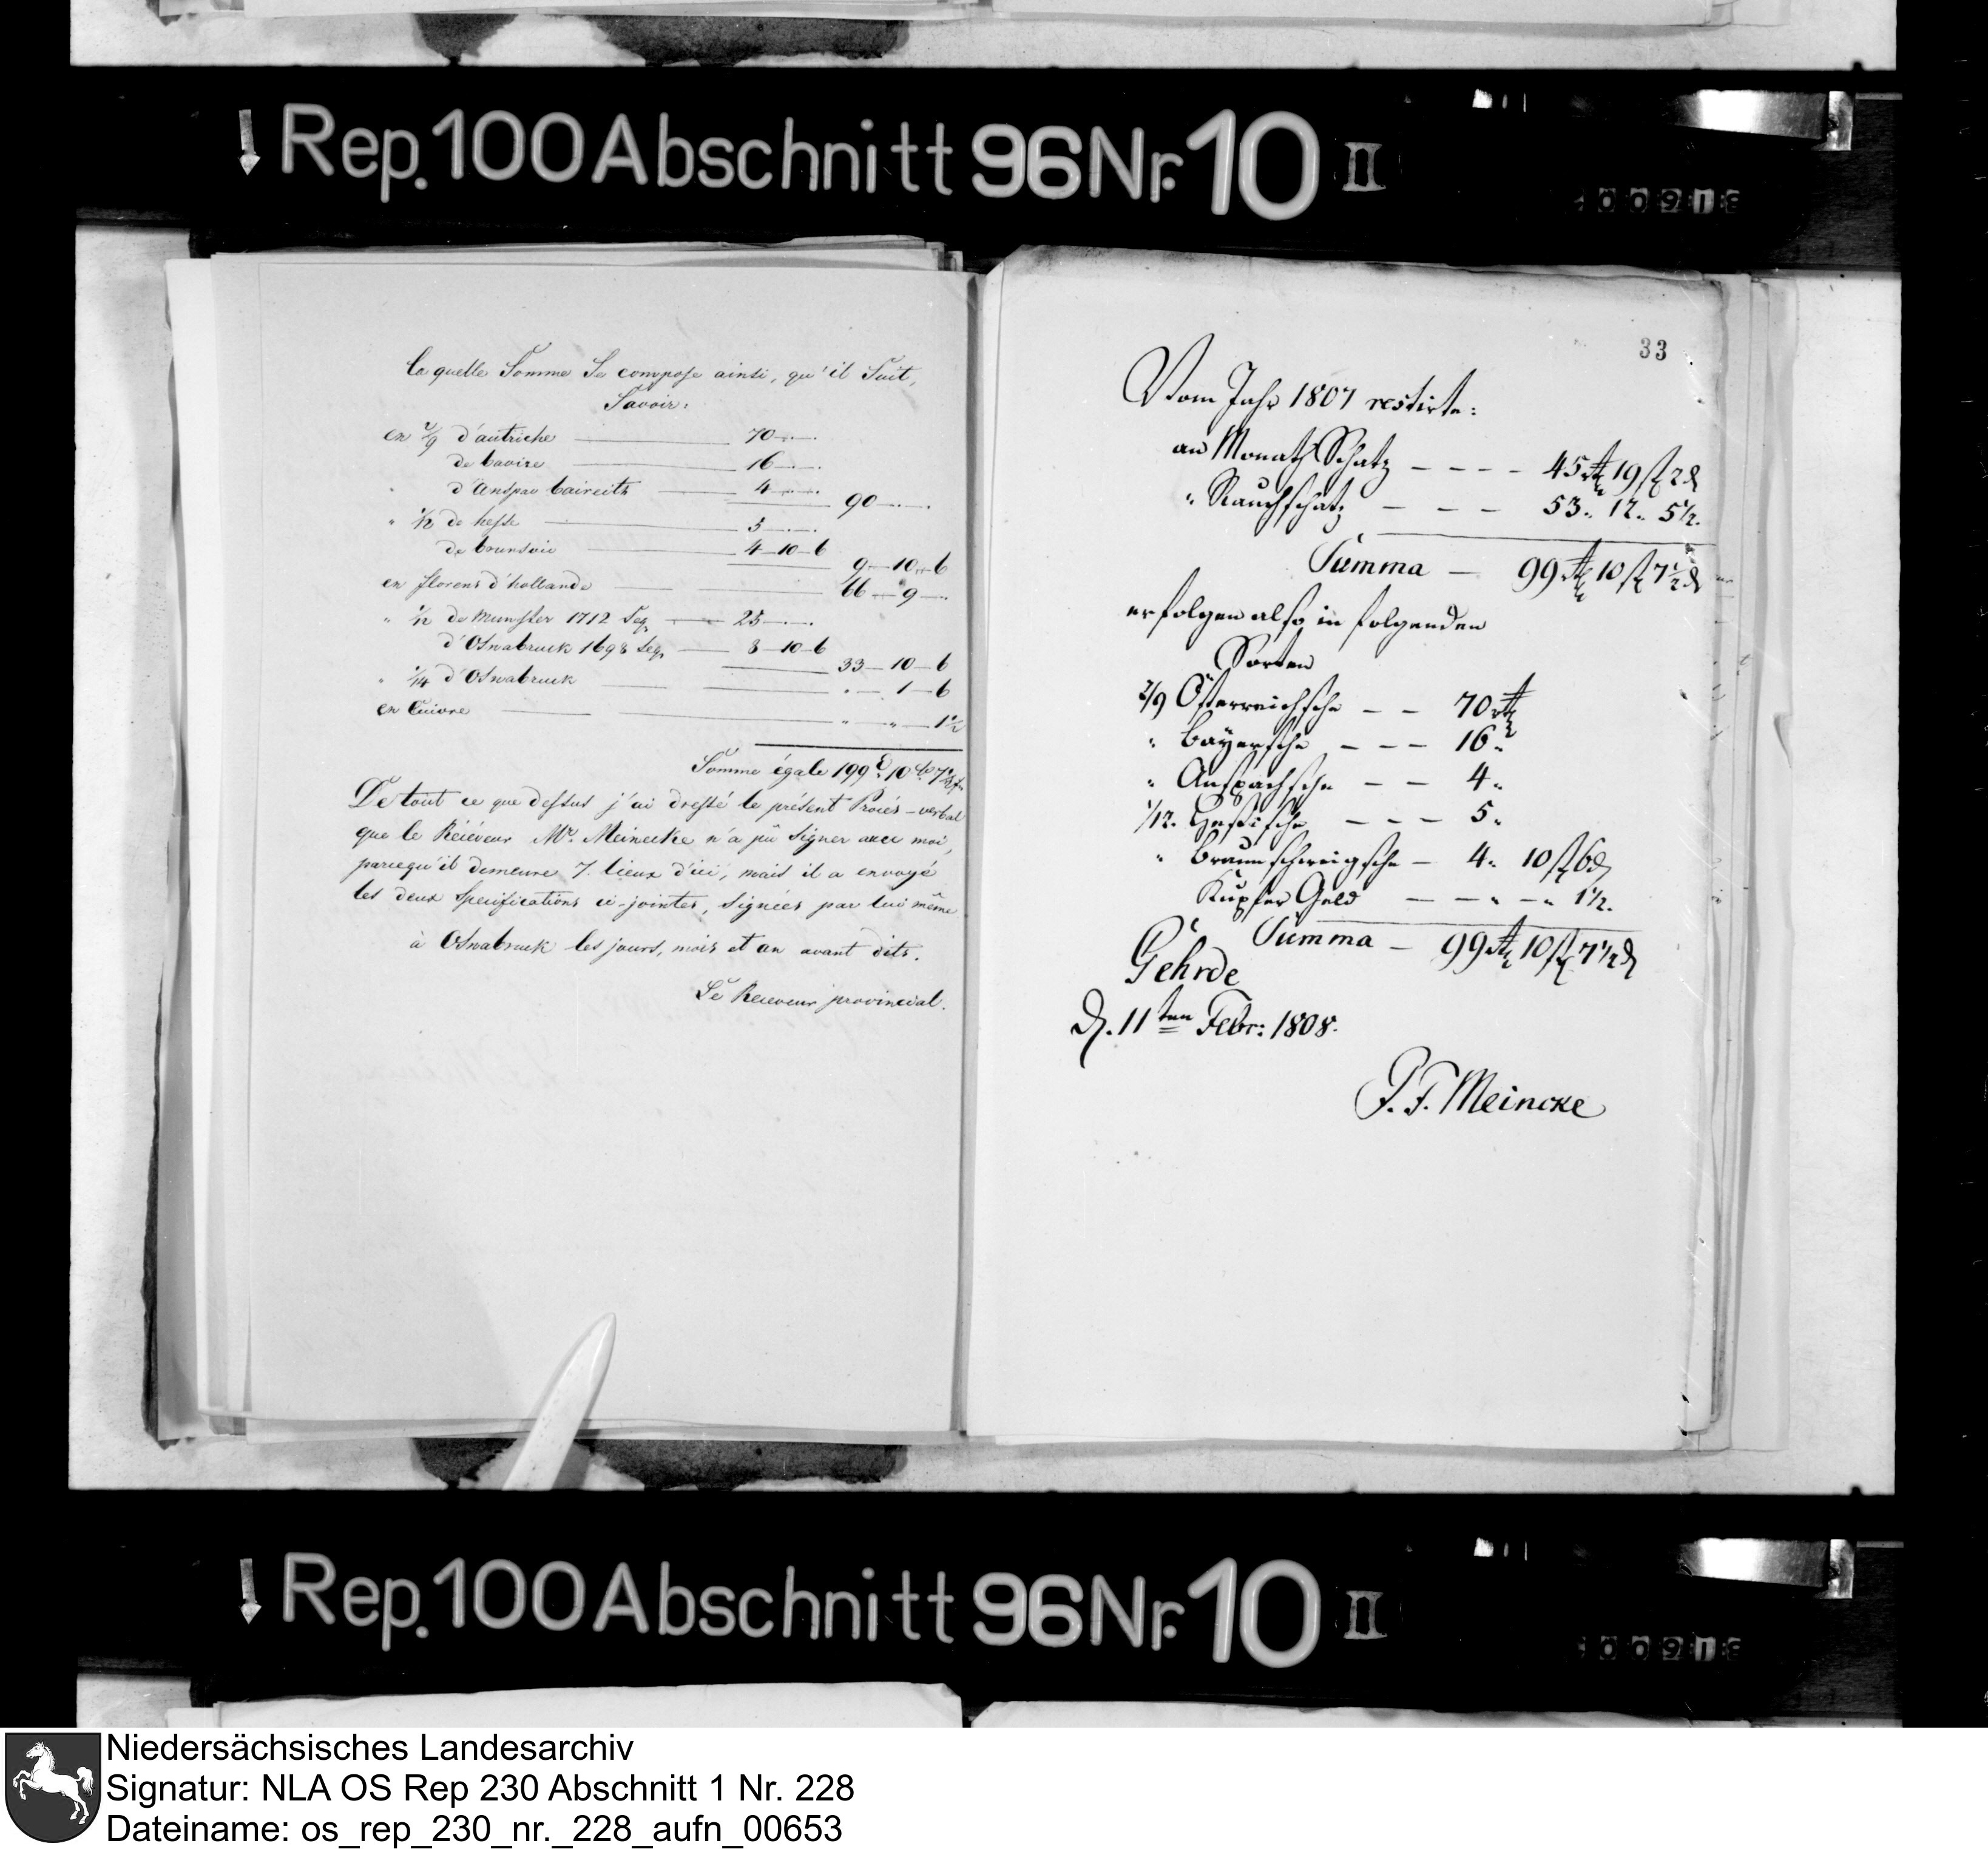 Rep. 100 Abschnitt 96 Nr. 10 II
00913
laquelle Somme Se compose ainsi, qu'il Suit,
Savoir:
en 2/9 d'autriche 70 -..-.
de bavire 16 -..-.
" d'Anspac baireith 4 -..-.
90 -..-.
" 1/12 de hesse 5 -..-.
de brunsvic 4 - 10 - 6
9 - 10 - 6
en florens d'hollande 66 - 9 -.
" 1/12 de Munster 1712 Seq. 25 -..-.
d'Osnabruck 1698 Seq. 8 - 10 - 6
33 - 10 - 6
" 1/14 d'Osnabruck " - 1 - 6
en Cuivre " - " - 1 1/2
Somme égale 199 10 7 1/2
De tout ce que dessus j'ai dressé le présent Procés-verbal
que le Réceveur Mr. Meinecke n'a pû Signer avec moi,
parcequ'il demeure 7. lieux d'ici, mais il a envoyé
les deux Specifications ci-jointes, Signées par lui même
à Osnabruck les jours, mois et an avant dits.
Le Receveur provincial.
33
Vom Jahr 1807 restirte:
an Monath Schatz - - - - 45 rt 19 ß 2 d
" Rauchschatz - - - 53 " 12 " 5 1/2.
Summa - 99 rt 10 ß 7 1/2 d
erfolgen also in folgenden
Sorten
2/9 Österreichsche - - 70 rt
" Bayersche - - - 16 "
" Anspachsche - - 4 "
1/12. Hessische - - - 5 "
" Braunschweigsche - 4 " 10 ß 6 d
Kupfer Geld - - " - " 1 1/2.
Summa - 99 rt 10 ß 7 1/2 d
Gehrde
d. 11ten Febr: 1808.
P. F. Meincke
Rep. 100 Abschnitt 96 Nr. 10 II
00913
Niedersächsisches Landesarchiv
Signatur: NLA OS Rep 230 Abschnitt 1 Nr. 228
Dateiname: os_rep_230_nr._228_aufn_00653